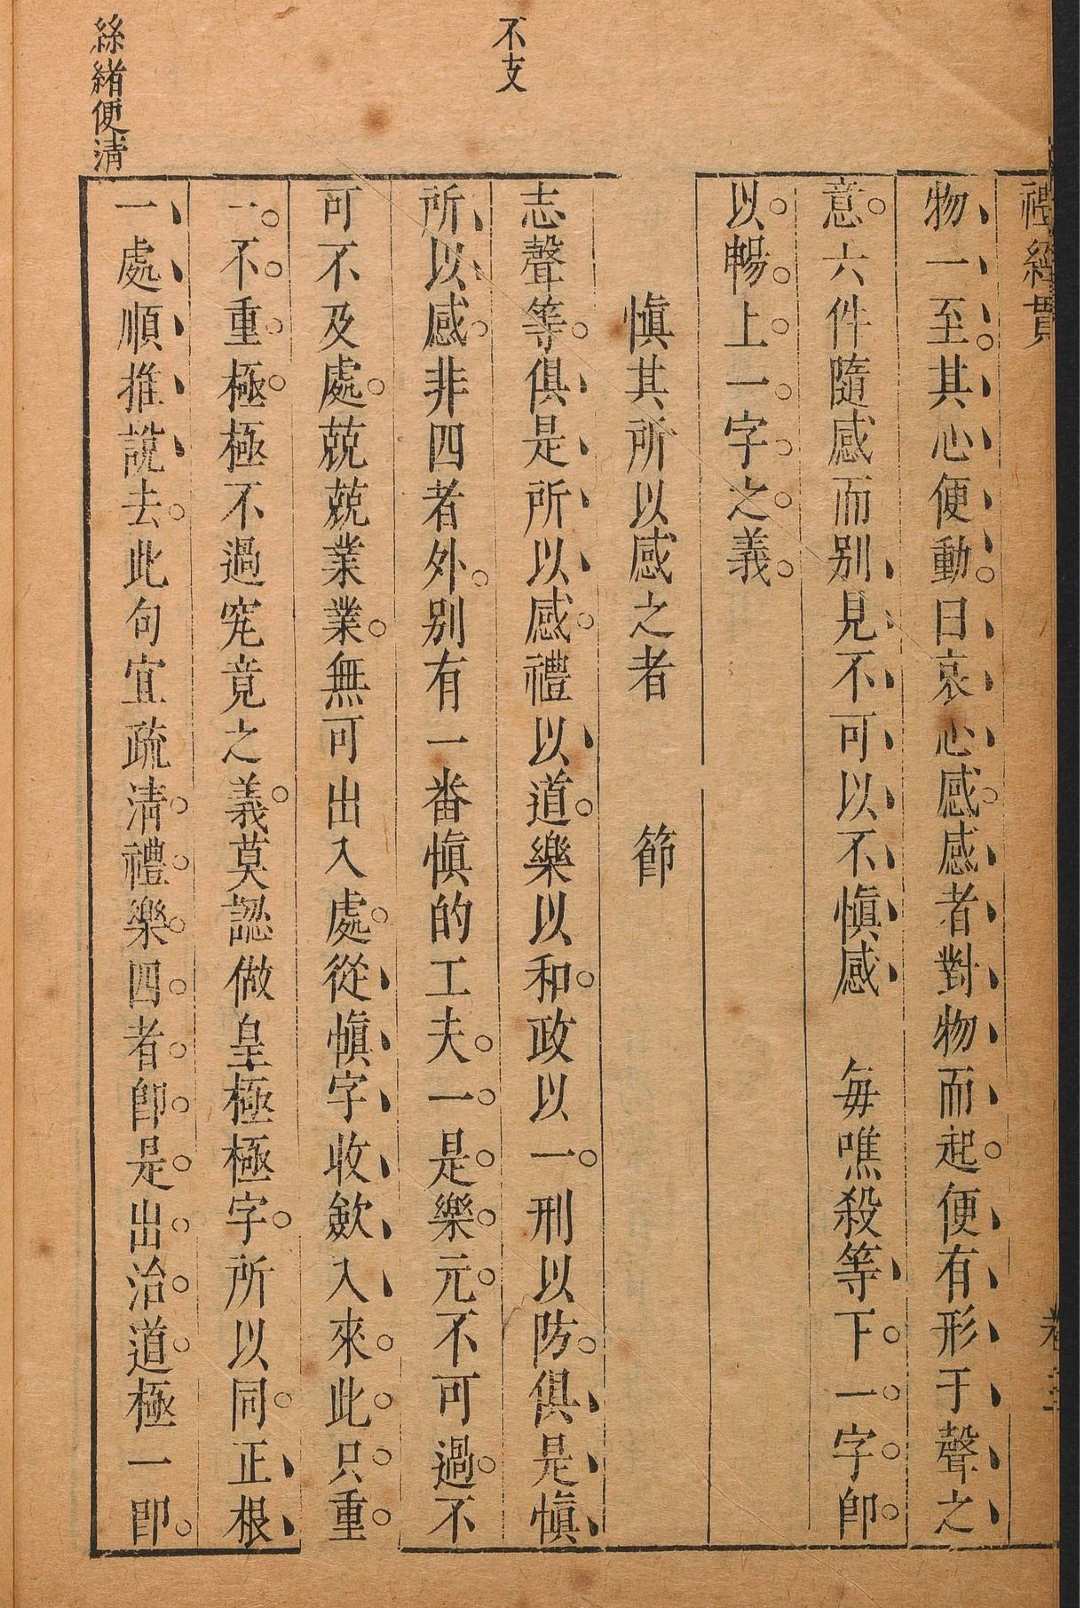 禮經貫
卷三
物一至其心便動曰哀心感感者對物而起便有形于聲之
意六件隨感而别見不可以不愼感　每噍殺等下一字卽
以暢上一字之義
愼其所以感之者　節
不支
志聲等俱是所以感禮以道樂以和政以一刑以防俱是愼
所以感非四者外别有一番愼的工夫一是樂元不可過不
可不及處兢兢業業無可出入處從愼字收斂入來此只重
一不重極極不過究竟之義莫認做皇極極字所以同正根
絲緒便清
一處順推說去此句宜疏清禮樂四者卽是出治道極一卽